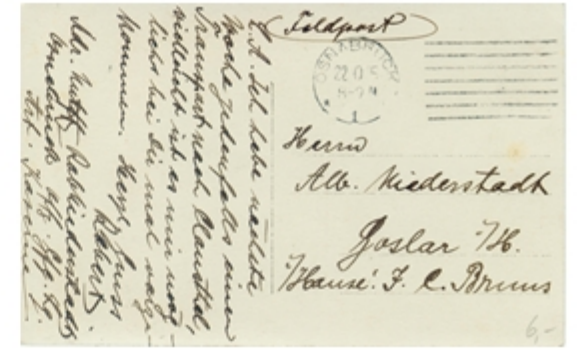 Feldpost
OSNABRÜCK
1
Herrn
Alb. Niederstadt
Goslar /H.
Hause: F. C. Bruns
L. A. Ich habe nächste
Woche jedenfalls einen
Transport nach Clausthal,
vielleicht ist es mir mög-
lich bei Dir mal vorzu-
kommen. Herzl. Gruss
Robert
Abs. Niederstadt
Osnabrück
Art. Kaserne
6,-